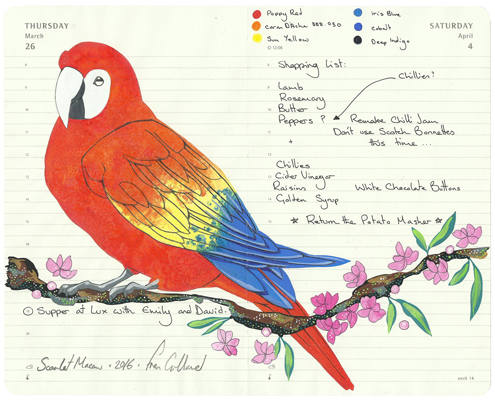 THURSDAY
March
26
Poppy Red
Caran D'Ache 888.030
Sun Yellow
Iris Blue
Cobalt
Deep Indigo
SATURDAY
April
4
Shopping List:
Chillies?
Lamb
Rosemary
Butter
Peppers ?
Remake Chilli Jam
Don't use Scotch Bonnettes
this time ...
+
Chillies
Cider Vinegar
Raisins
White Chocolate Buttons
Golden Syrup
★ Return the Potato Masher ★
Supper at Lux with Emily and David.
Scarlet Macaw · 2016 ·
week 14